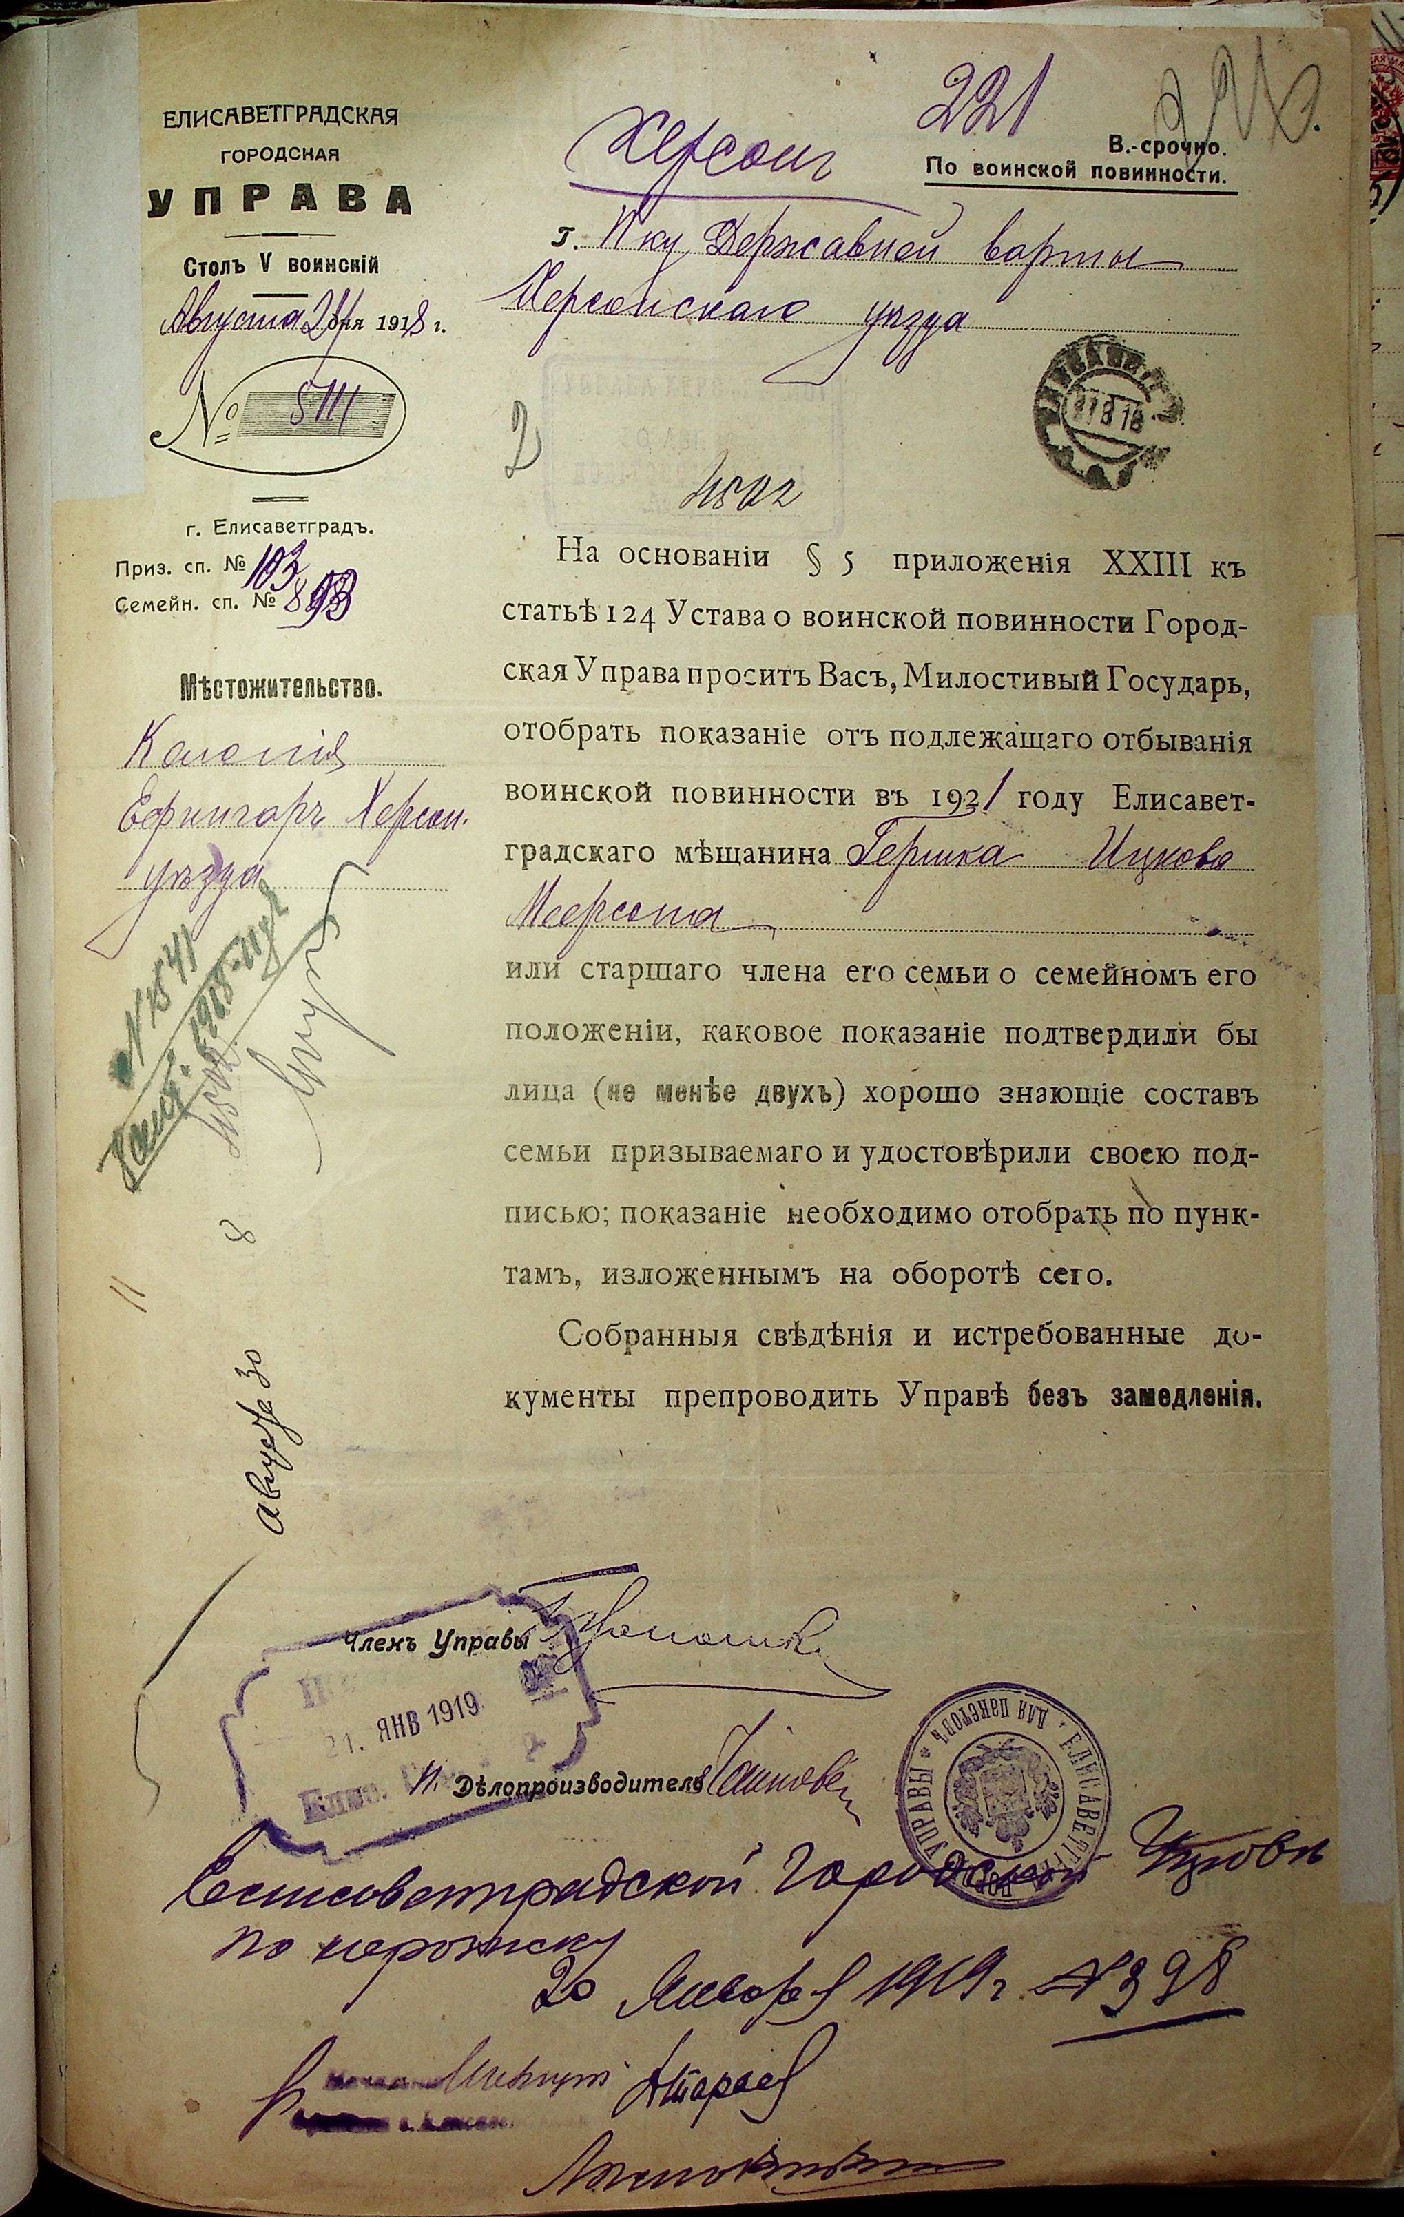 ЕЛИСАВЕТГРАДСКАЯ
ГОРОДСКАЯ
УПРАВА
Столъ V воинскій
Августа 24 дня 1918 г.
№ 5111
г. Елисаветградъ.
Приз. сп. № 103
Семейн. сп. № 893
Мѣстожительство.
Колонія
Ефингаръ Херсон.
уѣзда
221
Херсонъ
В.-срочно.
По воинской повинности.
г. Нку Державней варты
Херсонскаго уѣзда
27 8 18
2
4502
На основаніи § 5 приложенія XXIII къ
статьѣ 124 Устава о воинской повинности Город-
ская Управа проситъ Васъ, Милостивый Государь,
отобрать показаніе отъ подлежащаго отбыванія
воинской повинности въ 1921 году Елисавет-
градскаго мѣщанина Гершка Ицкова
Меерсона
или старшаго члена его семьи о семейномъ его
положеніи, каковое показаніе подтвердили бы
лица (не менѣе двухъ) хорошо знающіе составъ
семьи призываемаго и удостовѣрили своею под-
писью; показаніе необходимо отобрать по пунк-
тамъ, изложеннымъ на оборотѣ сего.
Собранныя свѣдѣнія и истребованные до-
кументы препроводить Управѣ безъ замедленія.
№ 1541
4502
11 8
августа 30
Членъ Управы
21. ЯНВ 1919
И. Дѣлопроизводитель
ЕЛИСАВЕТГР. ГОР. УПРАВЫ * для пакетовъ
Елисаветградской Городской Управѣ
по розыску
20 Января 1919 г. № 398